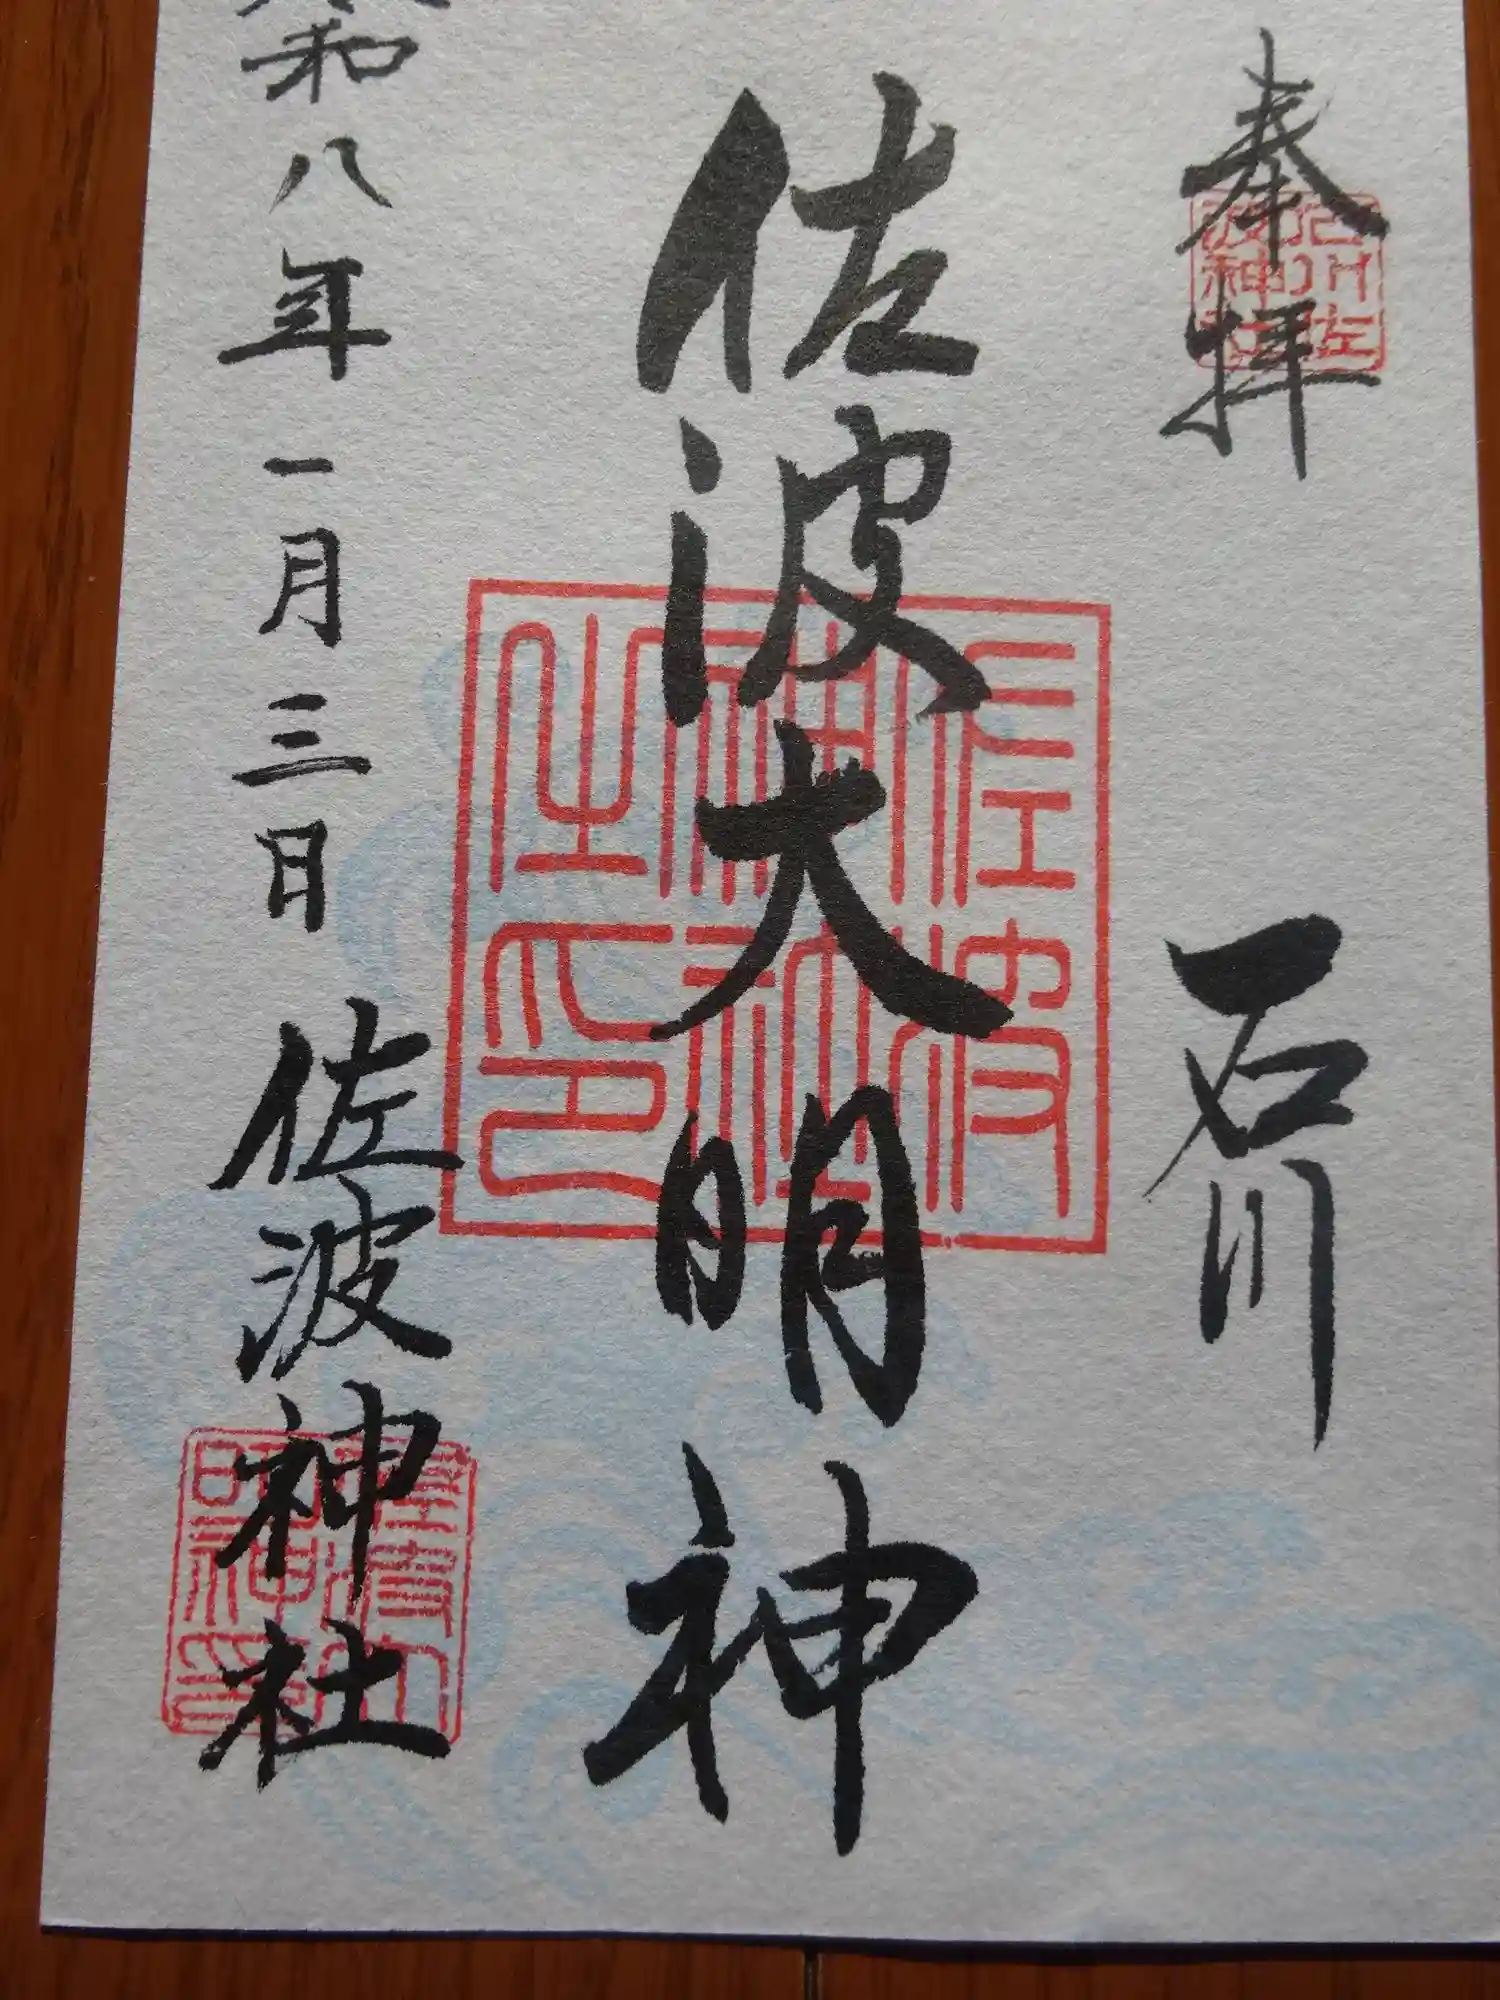 奉拝
石川
佐波大明神
令和八年一月三日
佐波神社
佐波神社之印
石川佐波神社